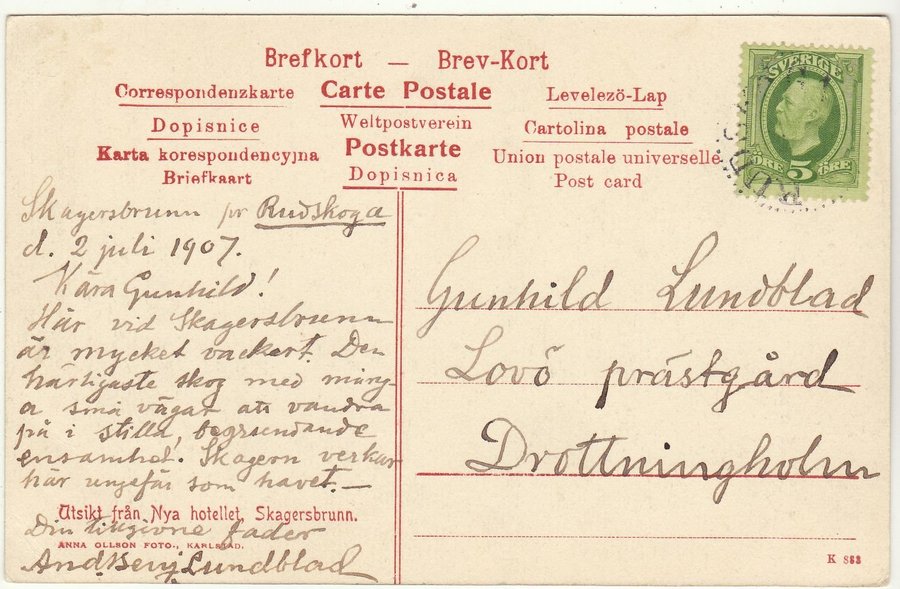 Brefkort — Brev-Kort
Correspondenzkarte Carte Postale Levelezö-Lap
Dopisnice Weltpostverein Cartolina postale
Karta korespondencyjna Postkarte Union postale universelle
Briefkaart Dopisnica Post card
SVERIGE
ÖRE 5 ÖRE
Skagersbrunn pr Rudskoga
d. 2 juli 1907.
Kära Gunhild!
Här vid Skagersbrunn
är mycket vackert. Den
härligaste skog med mång-
a små vägar att vandra
på i stilla, begrundande
ensamhet. Skagern verkar
här ungefär som havet. —
Utsikt från Nya hotellet Skagersbrunn.
Din tillgivne fader
ANNA OLLSON FOTO., KARLSTAD.
And. Benj. Lundblad
Gunhild Lundblad
Lovö prästgård
Drottningholm
K 863